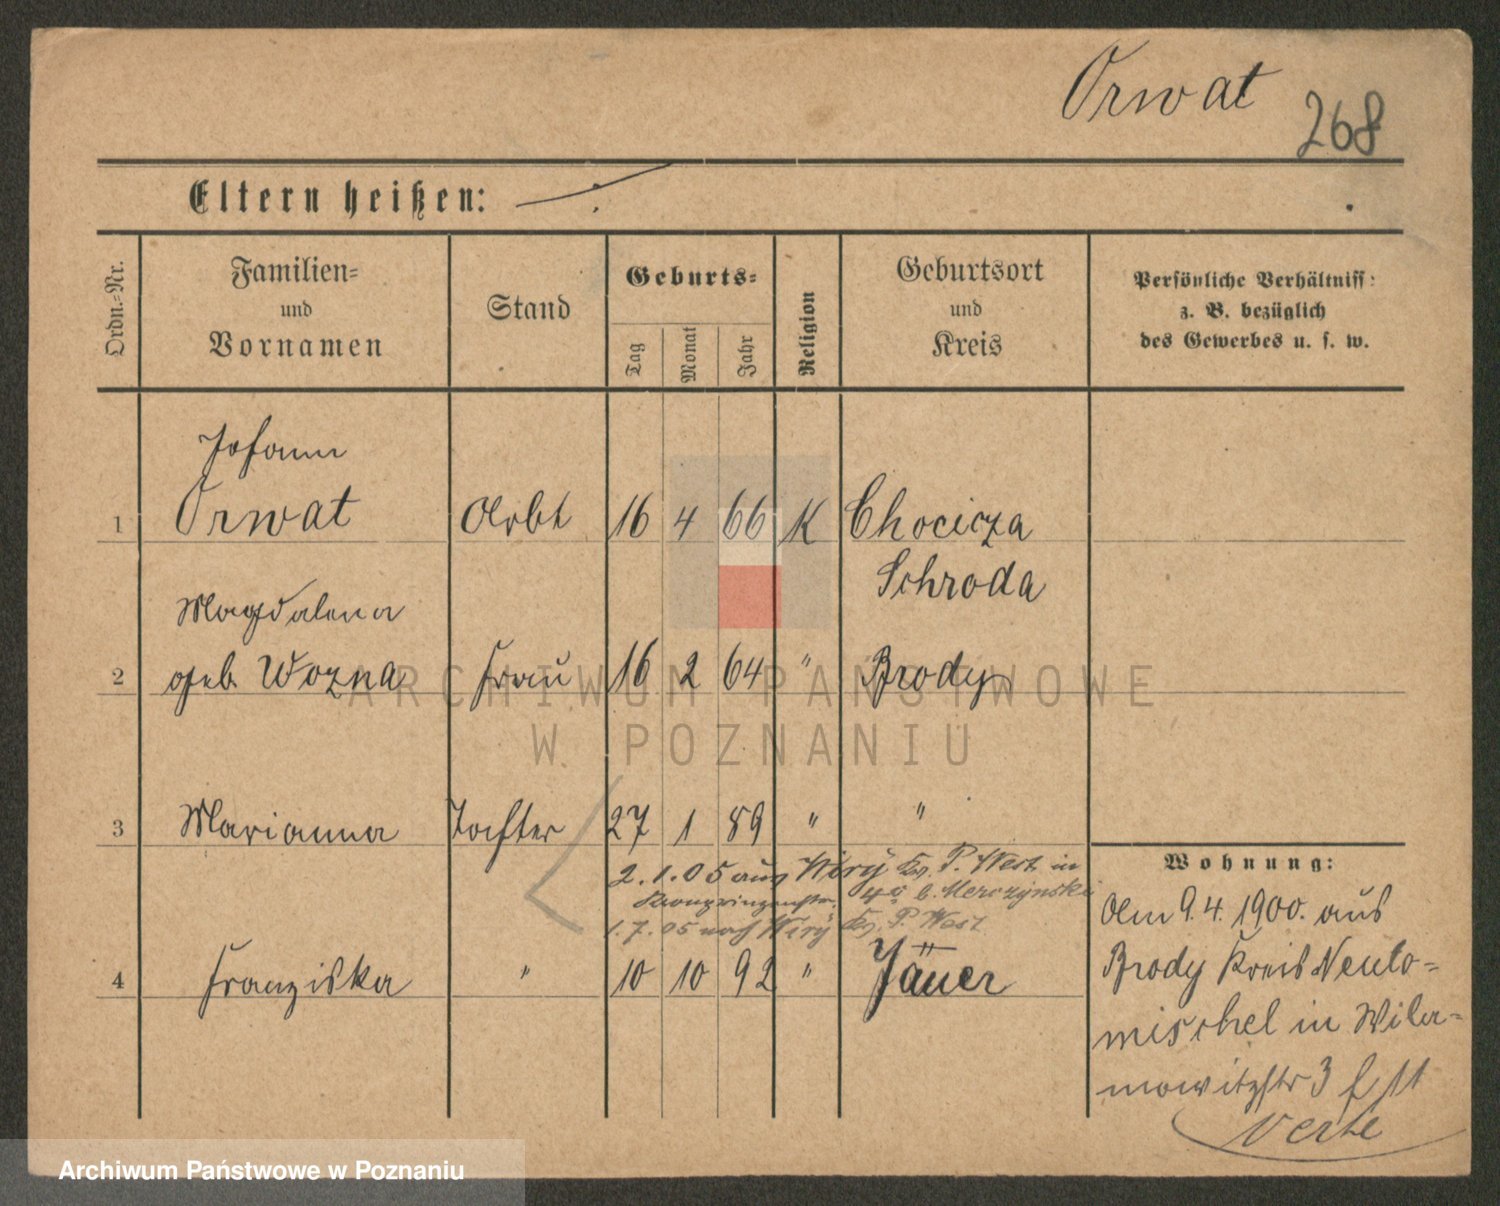 Orwat
268
Eltern heißen:
Ordn.=Nr.
Familien=
und
Vornamen
Stand
Geburts=
Tag
Monat
Jahr
Religion
Geburtsort
und
Kreis
Persönliche Verhältniss:
z. B. bezüglich
des Gewerbes u. s. w.
Johann
1 Orwat Arbt 16 4 66 K Chocicza
Schroda
Magdalena
2 geb. Wozna Frau 16 2 64 " Brody
3 Marianna Tochter 27 1 89 " "
2.1.05 aus Wiry Kr. P. West in
Kronprinzenstr. b. Merczynski
1.7.05 nach Wiry Kr. P. West
4 Franziska " 10 10 92 " "
Jauer
Wohnung:
Am 9.4.1900. aus
Brody Kreis Neuto=
mischel in Wila=
mowitzstr 3
verte
ARCHIWUM PAŃSTWOWE
W POZNANIU
Archiwum Państwowe w Poznaniu